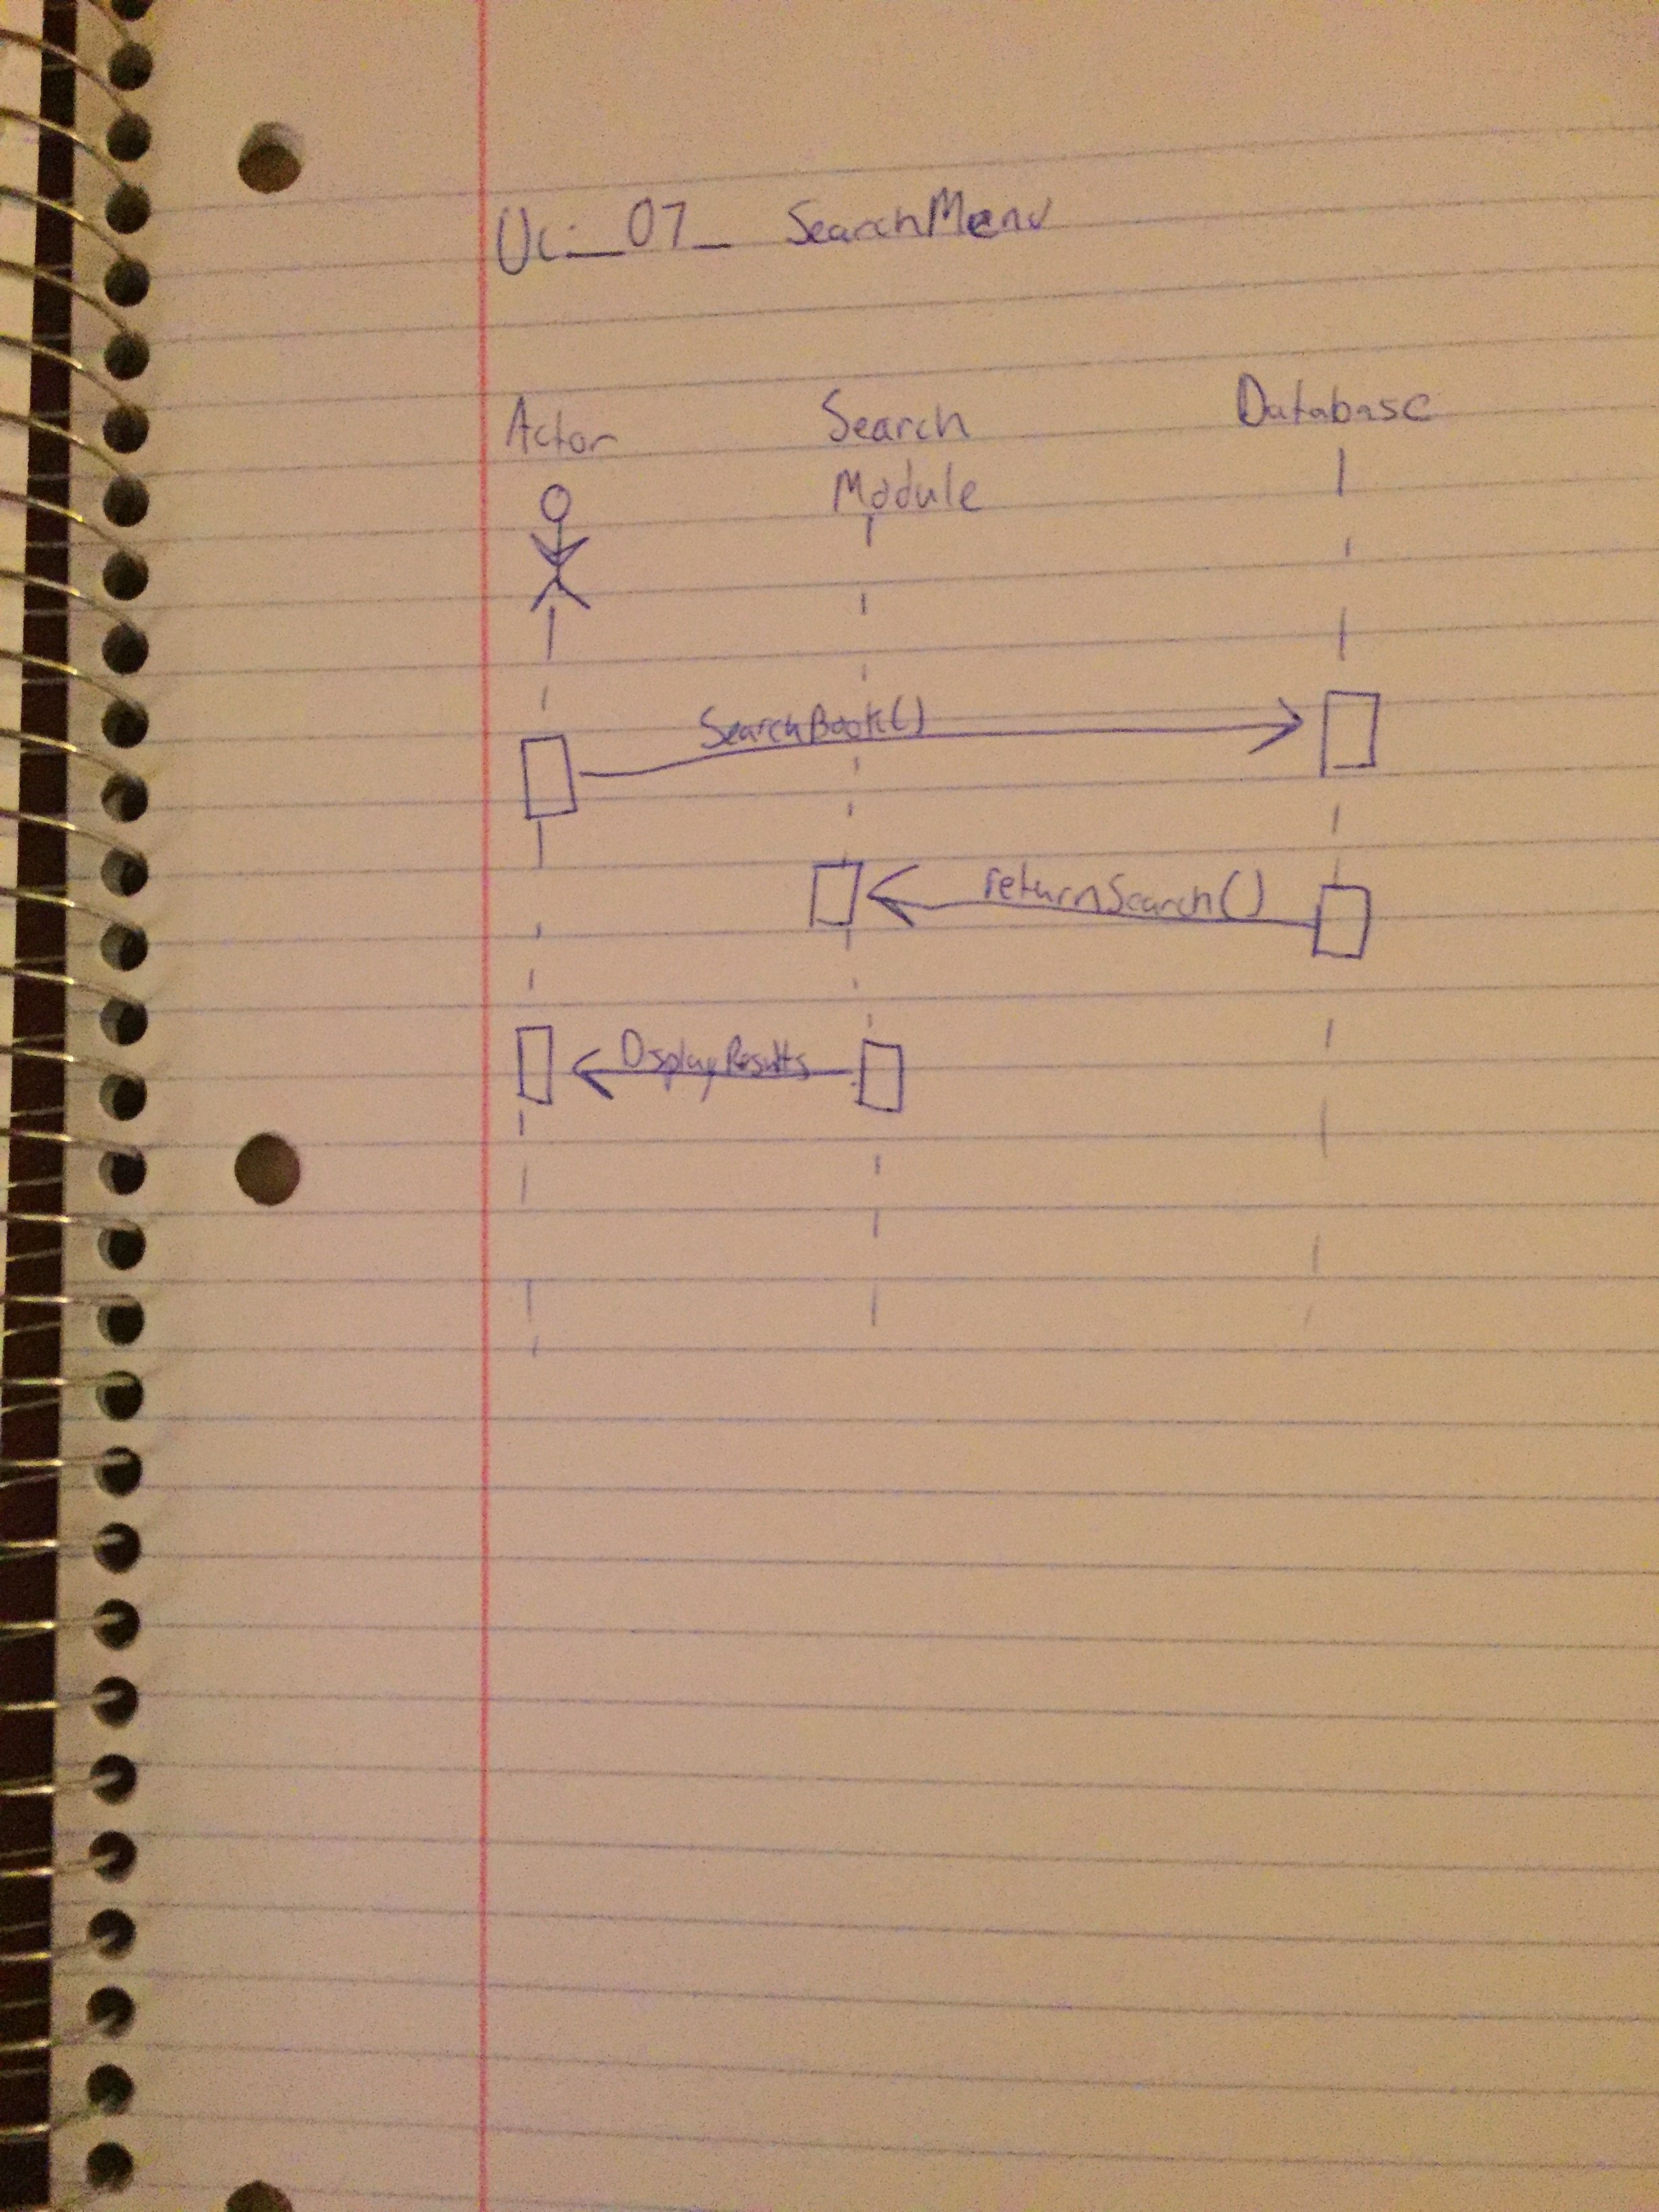 Uc_07_ SearchMenu
Actor Search Database
Module
SearchBook()
returnSearch()
DisplayResults